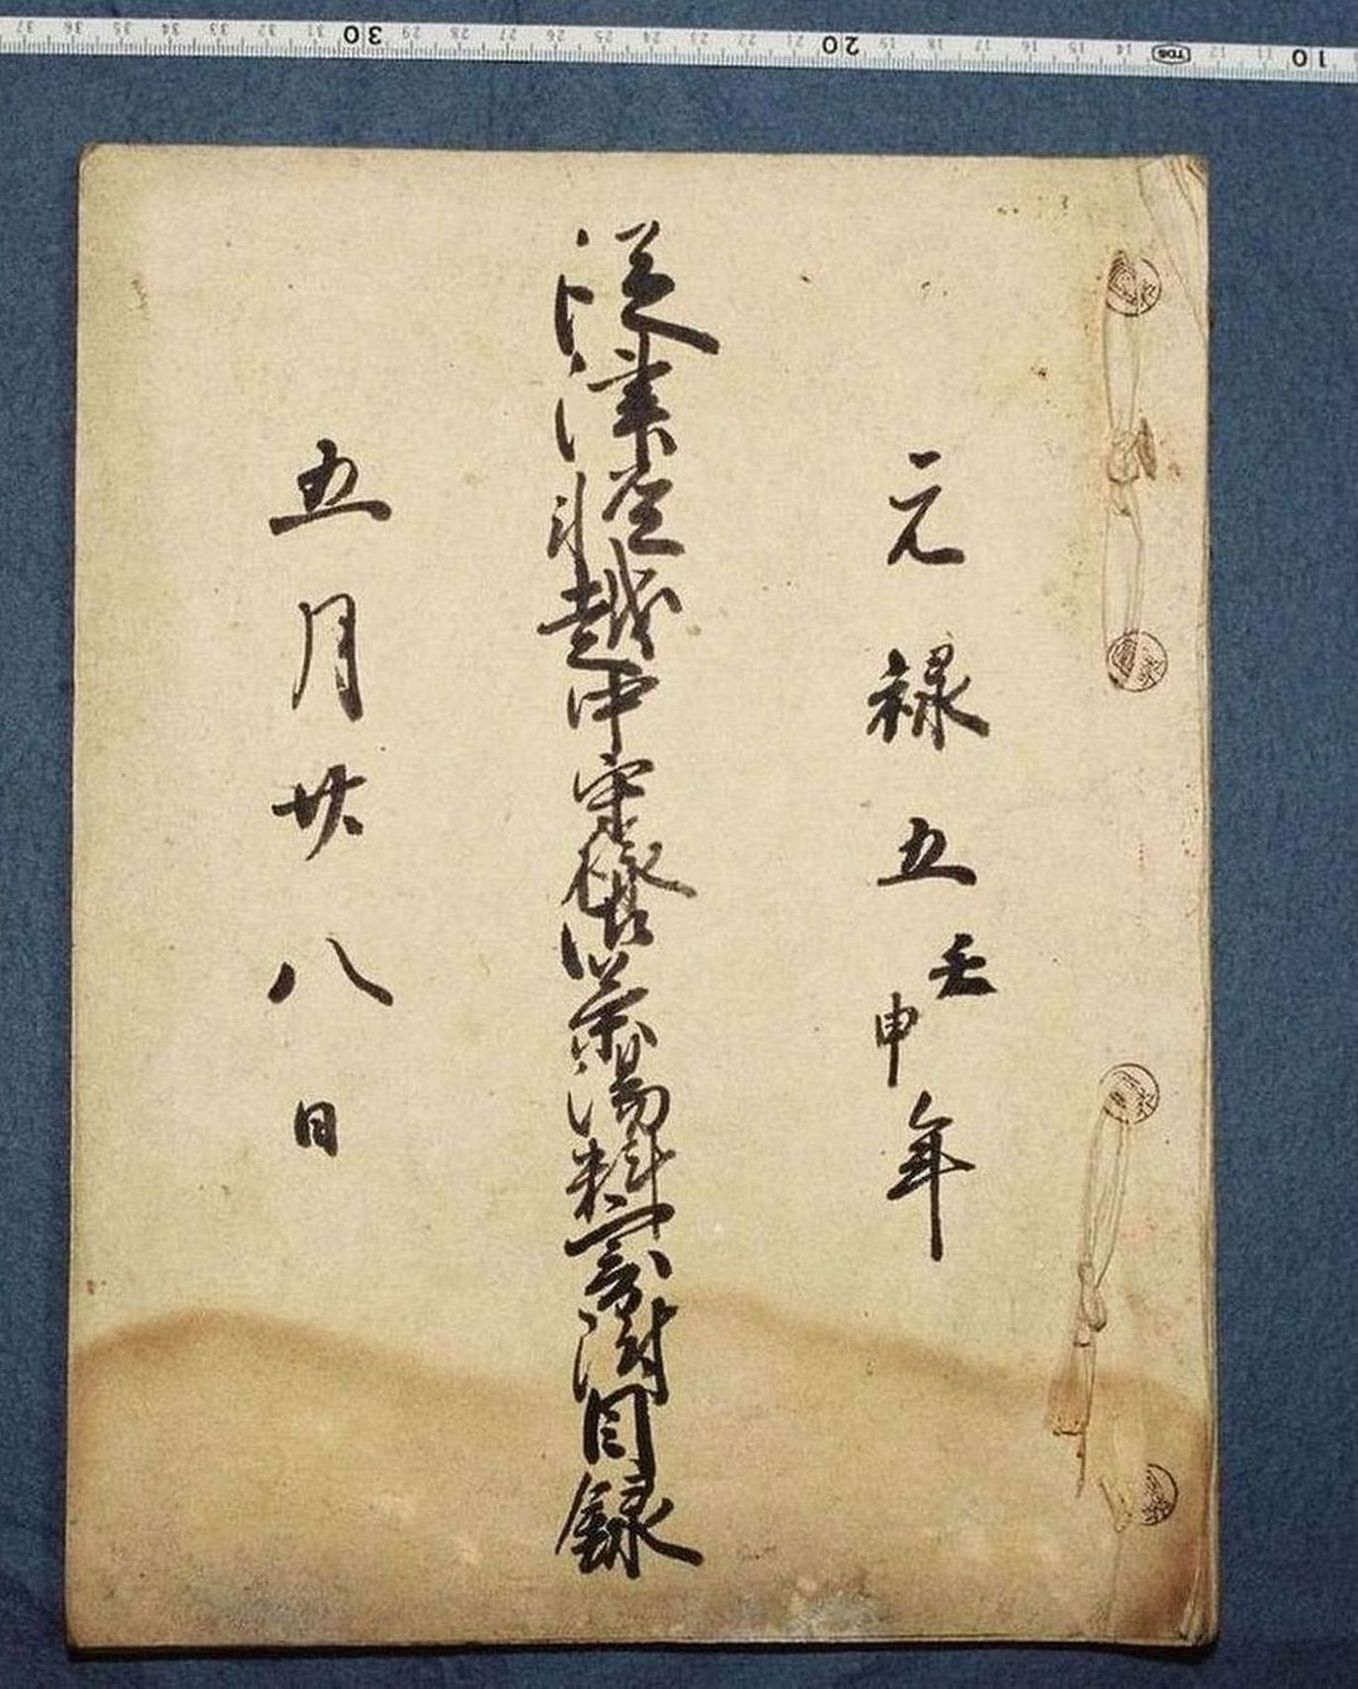 30 20 10
元禄五壬申年
従津軽越中守様御茶湯料寄附目録
五月廿八日